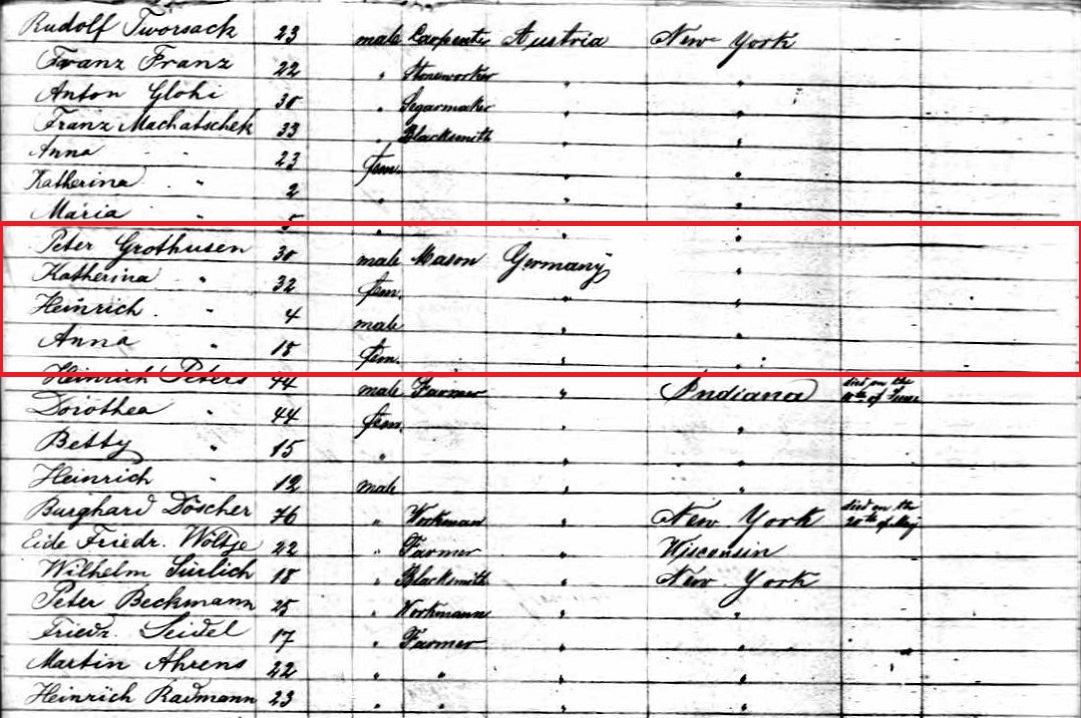 Rudolf Tworsack 23 male Carpente Austria New York
Franz Franz 22 " Stoneworker " "
Anton Glohi 30 " Segarmaker " "
Franz Machatschek 33 " Blacksmith " "
Anna " " 23 fem. " "
Katherina " 2 " " "
Maria " 5 " " "
Peter Grothusen 30 male Mason Germany "
Katherina " 32 fem. " "
Heinrich " 4 male " "
Anna " 18 fem. " "
Heinrich Peters 44 male Farmer " Indiana died on the
of June
Dorothea " 44 fem. " "
Betty " 15 " " "
Heinrich " 12 male " "
Burghard Döscher 76 " Workman " New York died on the
20th of May
Eide Friedr. Woltje 22 " Farmer " Wisconsin
Wilhelm 18 " Blacksmith " New York
Peter Beckmann 25 " Workmann " "
Friedr. Seidel 17 " Farmer " "
Martin Ahrens 22 " " " "
Heinrich Radmann 23 " " " "